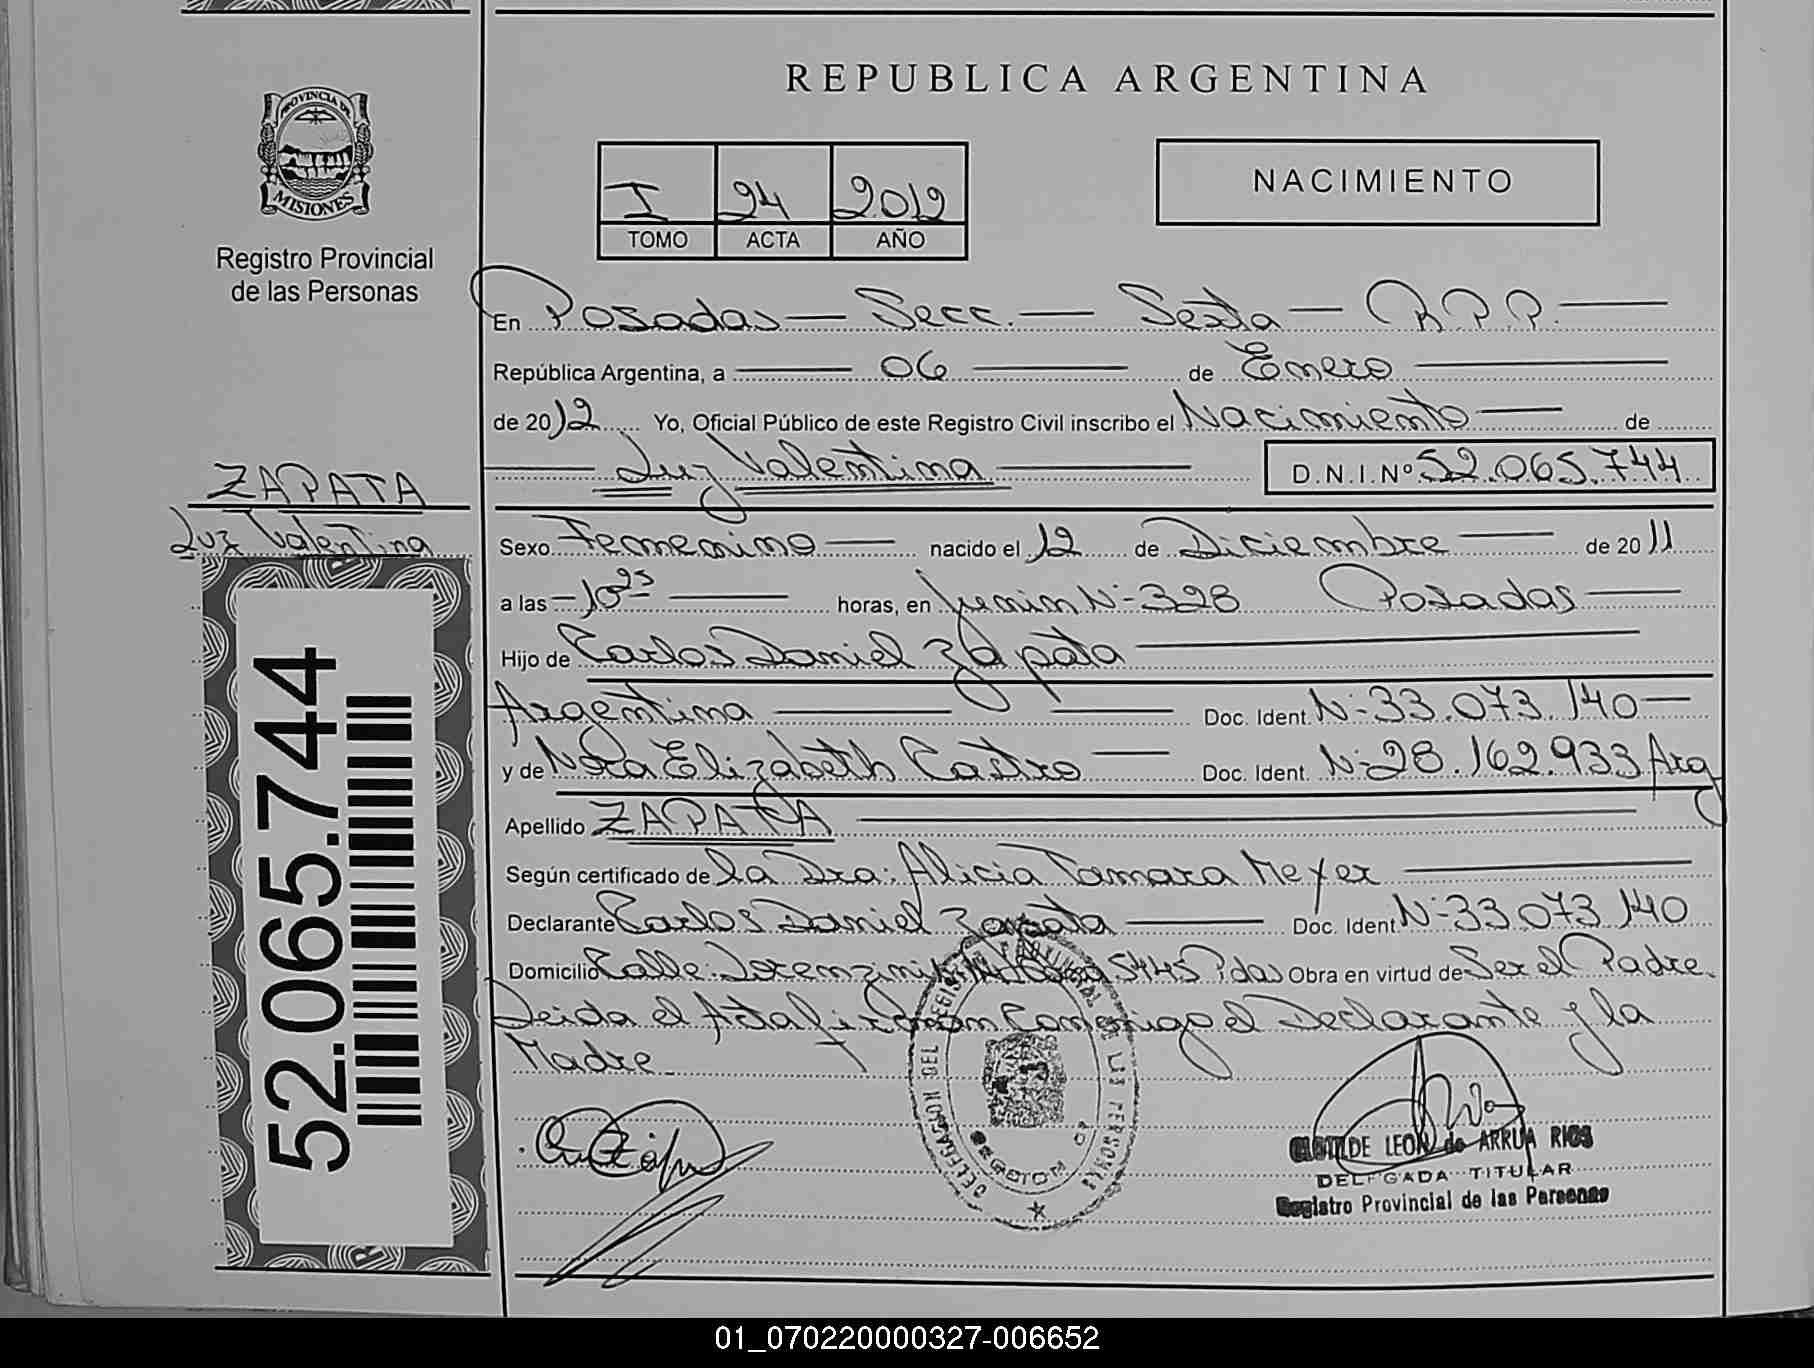 REPUBLICA ARGENTINA
PROVINCIA DE
MISIONES
Registro Provincial
de las Personas
I 24 2012
TOMO ACTA AÑO
NACIMIENTO
En Posadas — Secc. — Sexta — R.P.P. —
República Argentina, a — 06 — de Enero —
de 2012 Yo, Oficial Público de este Registro Civil inscribo el Nacimiento — de
— Luz Valentina — D.N.I. Nº 52.065.744
ZAPATA
Luz Valentina
52.065.744
Sexo Femenino — nacido el 12 de Diciembre — de 2011
a las — 10 25 — horas, en Junin Nº 328 Posadas —
Hijo de Carlos Daniel Zapata —
Argentina — Doc. Ident. Nº 33.073.140 —
y de Elizabeth Castro — Doc. Ident. Nº 28.162.933 Arg
Apellido ZAPATA —
Según certificado de la Dra: Alicia Tamara Meyer —
Declarante Carlos Daniel Zapata — Doc. Ident Nº 33.073.140
Domicilio Calle: Lorenzini 5445 Pdas Obra en virtud de Ser el Padre.
Leida el Acta firman Conmigo el Declarante y la
Madre.
DELEGACION DEL REGISTRO PROVINCIAL DE LAS PERSONAS
LEON de ARRUA RIOS
DELEGADA TITULAR
Registro Provincial de las Personas
01_070220000327-006652